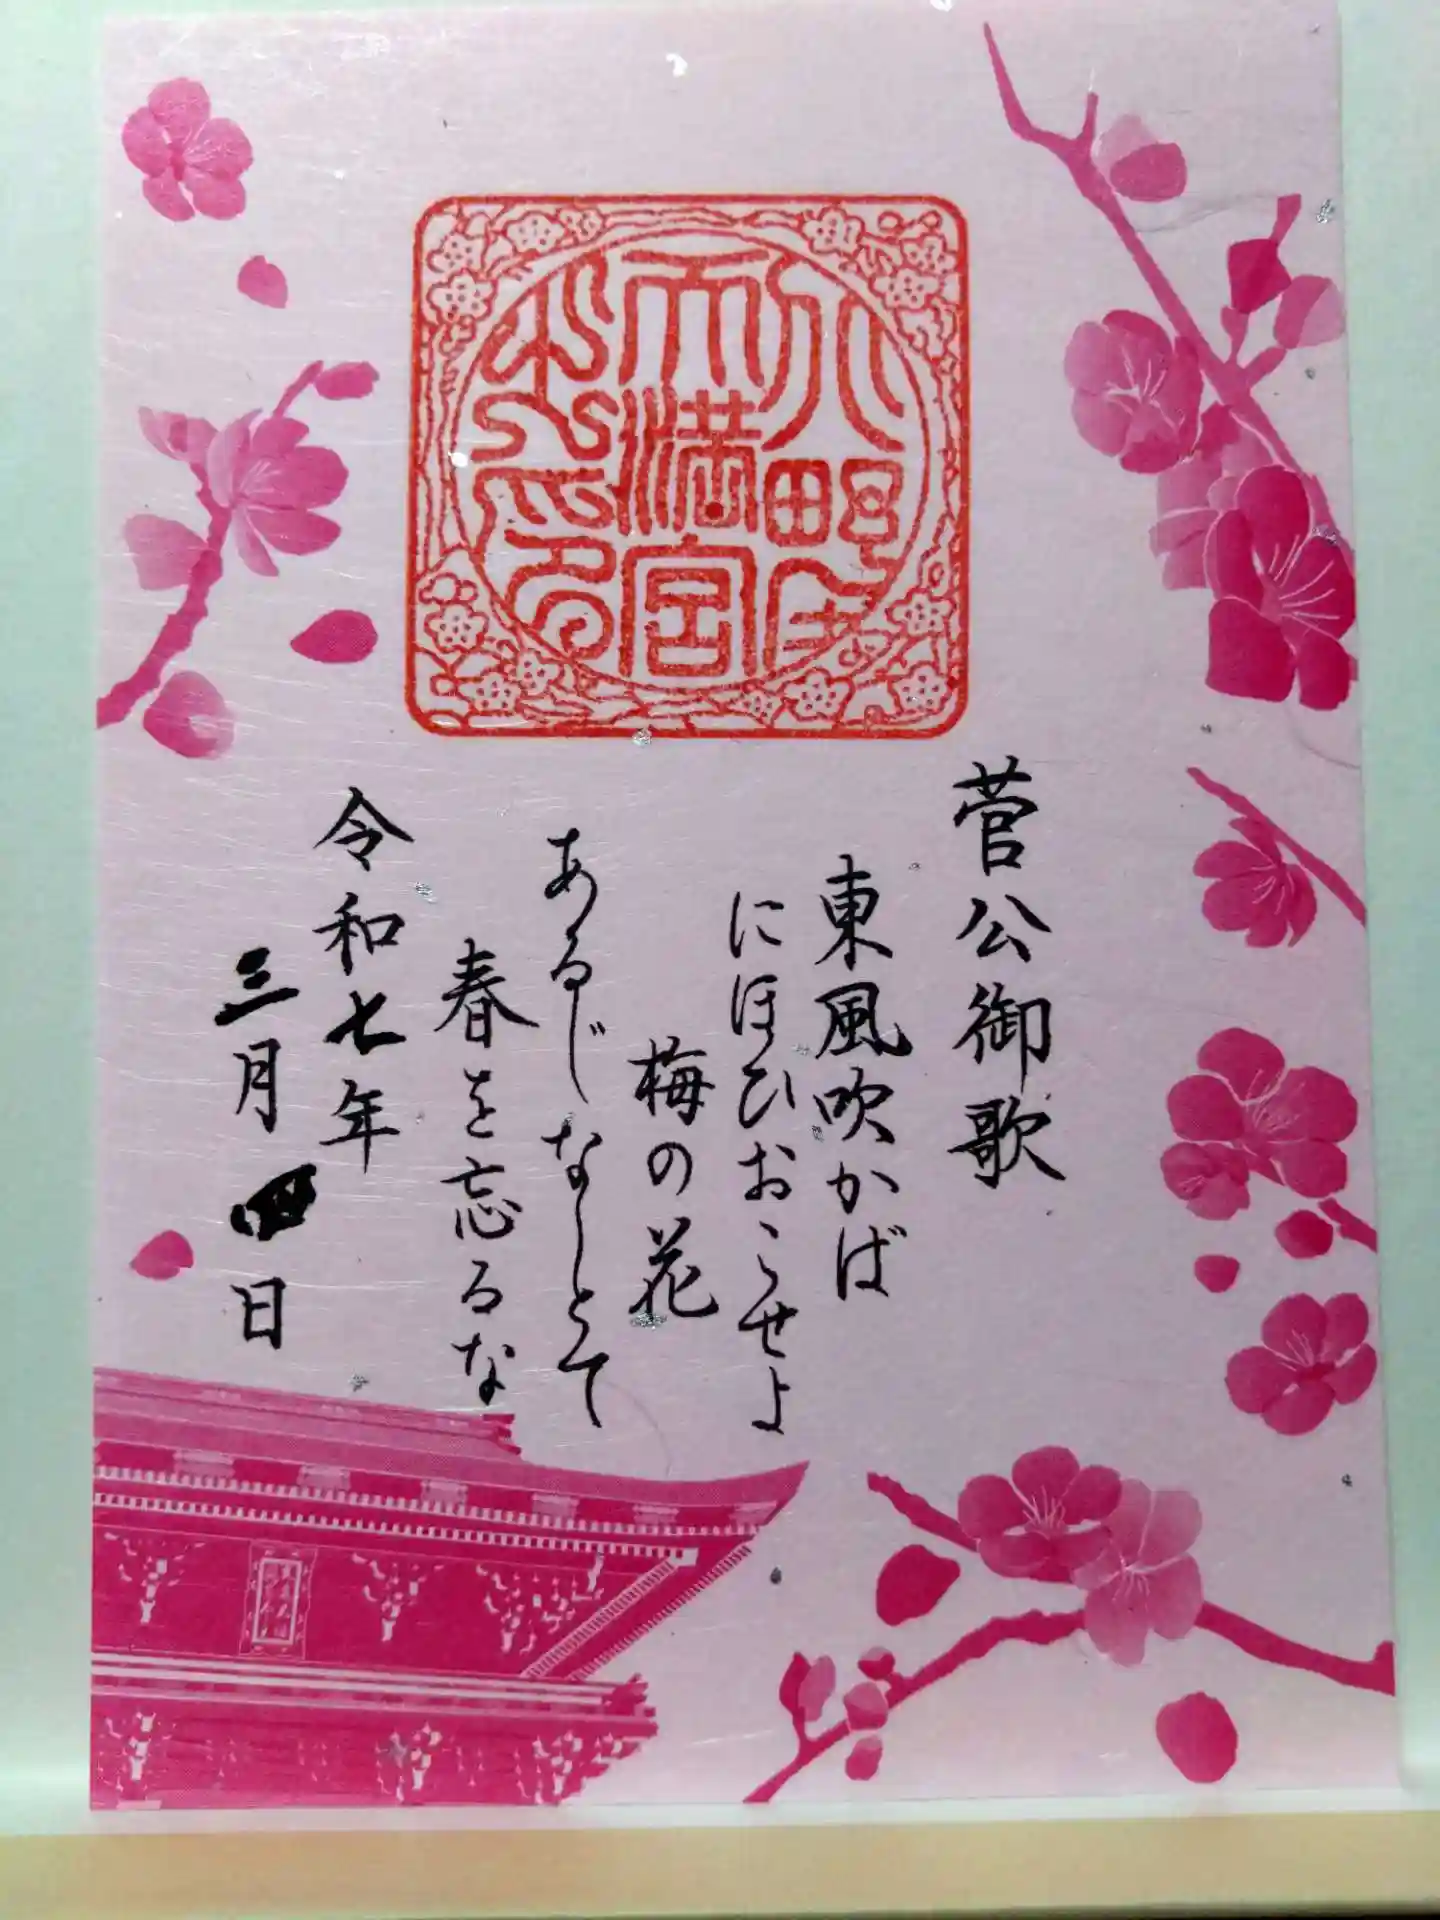 菅公御歌
東風吹かば
にほひおこせよ
梅の花
あるじなしとて
春を忘るな
令和七年
三月四日
天満宮